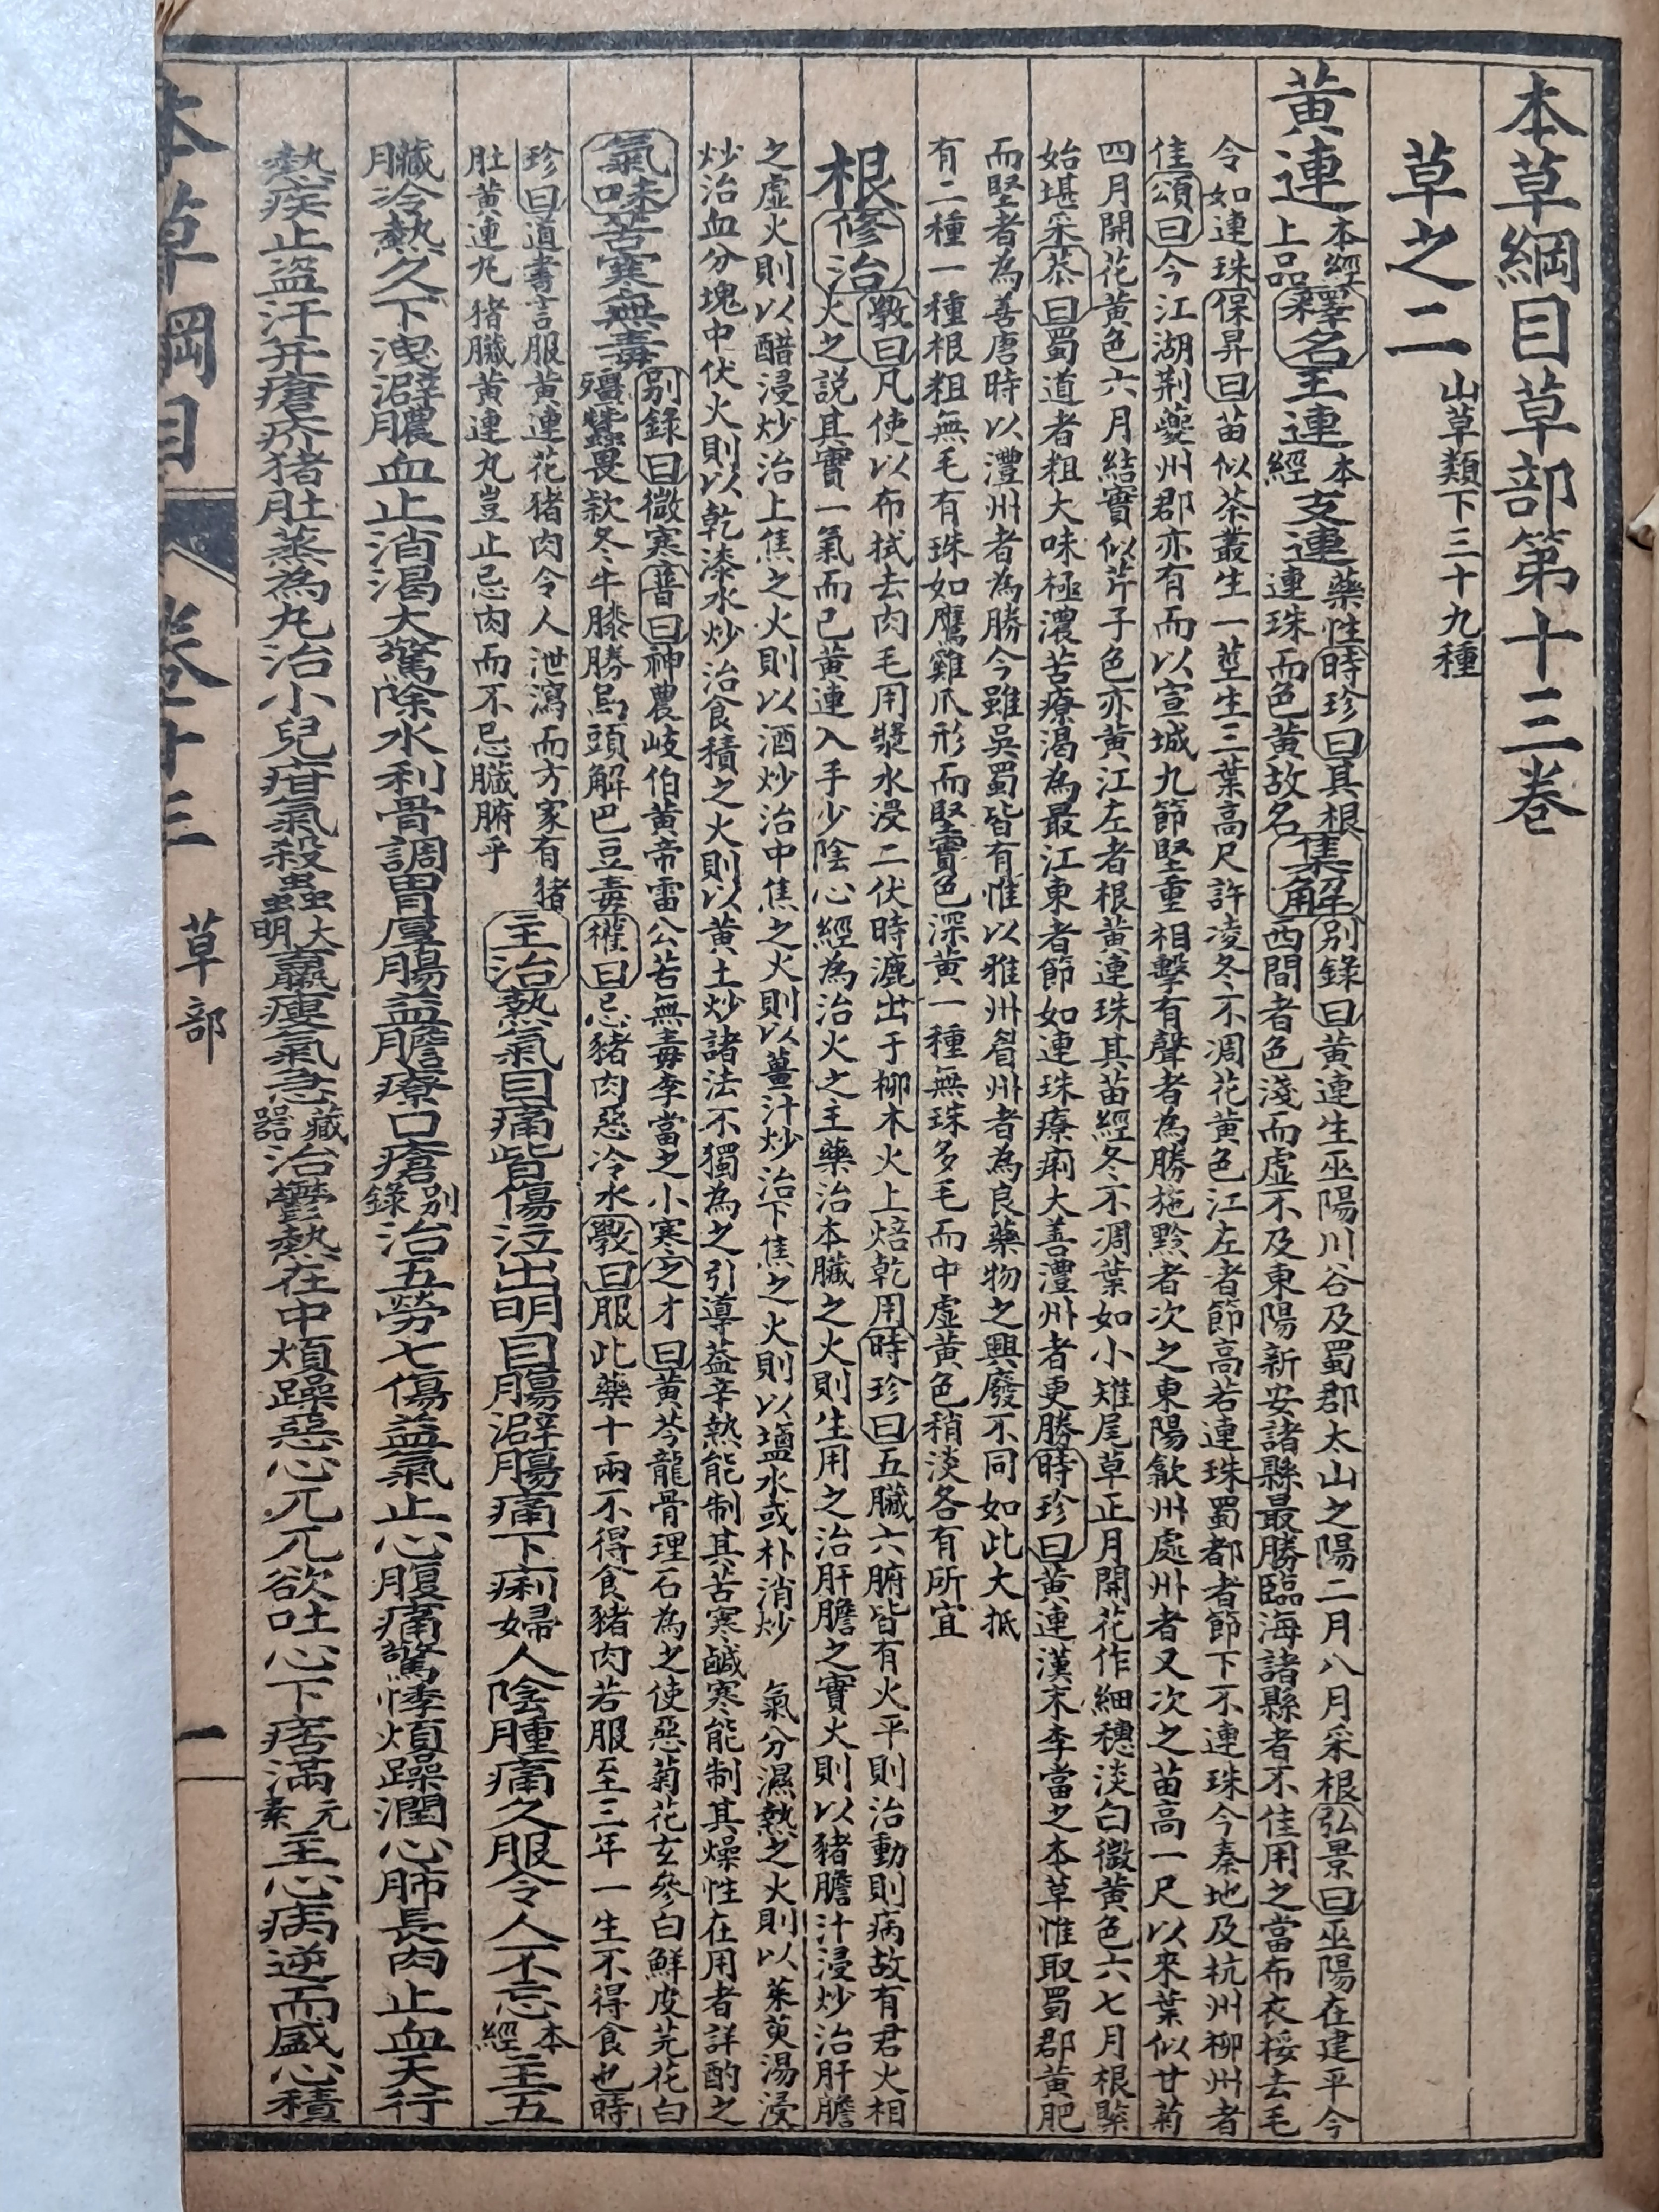 本草綱目草部第十三卷
草之二 山草類下三十九種
黃連 本經上品 釋名 王連 本經 支連 藥性 時珍曰其根連珠而色黃故名 集解 別錄曰黃連生巫陽川谷及蜀郡太山之陽二月八月采根弘景曰巫陽在建平今
西間者色淺而虛不及東陽新安諸縣最勝臨海諸縣者不佳用之當布衣挼去毛
令如連珠保昇曰苗似茶叢生一莖生三葉高尺許凌冬不凋花黃色江左者節高若連珠蜀都者節下不連珠今秦地及杭州柳州者
佳頌曰今江湖荊夔州郡亦有而以宣城九節堅重相擊有聲者為勝施黔者次之東陽歙州處州者又次之苗高一尺以來葉似甘菊
四月開花黃色六月結實似芹子色亦黃江左者根黃連珠其苗經冬不凋葉如小雉尾草正月開花作細穗淡白微黃色六七月根緊
始堪采恭曰蜀道者粗大味極濃苦療渴為最江東者節如連珠療痢大善澧州者更勝時珍曰黃連漢末李當之本草惟取蜀郡黃肥
而堅者為善唐時以澧州者為勝今雖吳蜀皆有惟以雅州眉州者為良藥物之興廢不同如此大抵
有二種一種根粗無毛有珠如鷹雞爪形而堅實色深黃一種無珠多毛而中虛黃色稍淡各有所宜
根 修治 斅曰凡使以布拭去肉毛用漿水浸二伏時漉出于柳木火上焙乾用時珍曰五臟六腑皆有火平則治動則病故有君火相
火之說其實一氣而已黃連入手少陰心經為治火之主藥治本臟之火則生用之治肝膽之實火則以豬膽汁浸炒治肝膽
之虛火則以醋浸炒治上焦之火則以酒炒治中焦之火則以薑汁炒治下焦之火則以鹽水或朴消炒 氣分濕熱之火則以茱萸湯浸
炒治血分塊中伏火則以乾漆水炒治食積之火則以黃土炒諸法不獨為之引導葢辛熱能制其苦寒鹹寒能制其燥性在用者詳酌之
氣味 苦寒無毒 別錄曰微寒普曰神農岐伯黃帝雷公苦無毒李當之小寒之才曰黃芩龍骨理石為之使惡菊花玄參白鮮皮芫花白
殭蠶畏款冬牛膝勝烏頭解巴豆毒權曰忌豬肉惡冷水斅曰服此藥十兩不得食豬肉若服至三年一生不得食也時
珍曰道書言服黃連花猪肉令人泄瀉而方家有猪
肚黃連丸猪臟黃連丸豈止忌肉而不忌臟腑乎
主治 熱氣目痛眥傷泣出明目腸澼腸痛下痢婦人陰腫痛久服令人不忘 本經 主五
臟冷熱久下洩澼膿血止消渴大驚除水利骨調胃厚腸益膽療口瘡 別錄 治五勞七傷益氣止心腹痛驚悸煩躁潤心肺長肉止血天行
熱疾止盜汗并瘡疥猪肚蒸為丸治小兒疳氣殺蟲 大明 羸瘦氣急 藏器 治鬱熱在中煩躁惡心兀兀欲吐心下痞滿 元素 主心病逆而盛心積
本草綱目 卷十三 草部 一